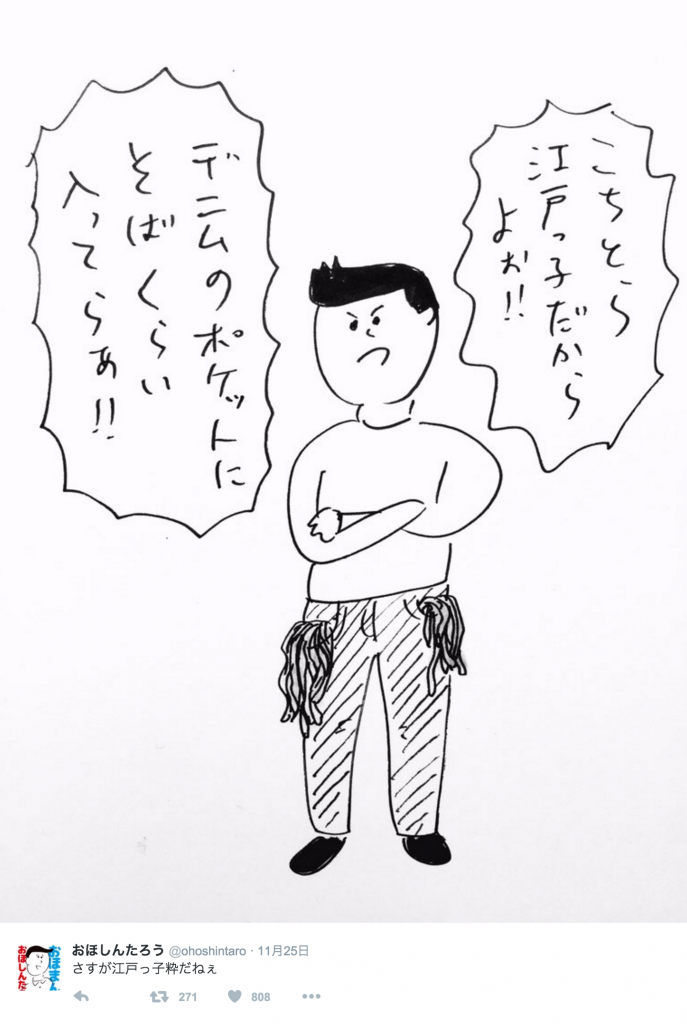 こちとら
江戸っ子だから
よぉ!!
デニムのポケットに
そばくらい
入ってらあ!!
おほしんたろう @ohoshintaro · 11月25日
さすが江戸っ子粋だねぇ
271
808